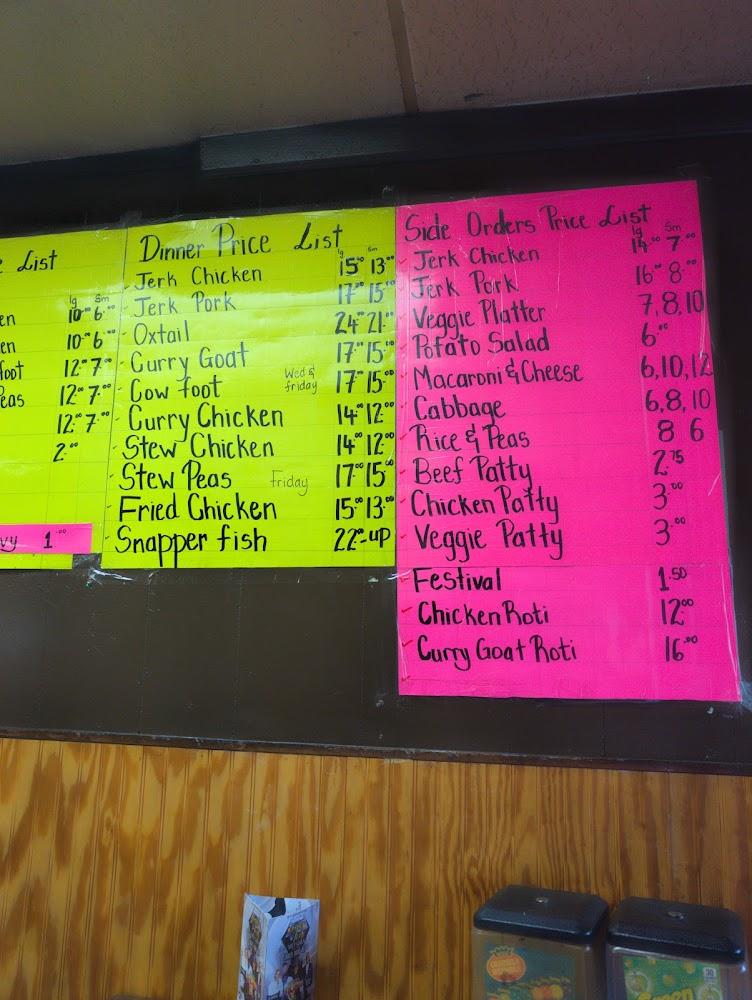 List
lg sm
10.00 6.00
10.00 6.00
foot 12.00 7.00
eas 12.00 7.00
12.00 7.00
2.00
vy 1.00
Dinner Price List
lg sm
Jerk Chicken 15.00 13.00
Jerk Pork 17.00 15.00
Oxtail 24.00 21.00
Curry Goat 17.00 15.00
Cow foot Wed & friday 17.00 15.00
Curry Chicken 14.00 12.00
Stew Chicken 14.00 12.00
Stew Peas Friday 17.00 15.00
Fried Chicken 15.00 13.00
Snapper fish 22.00-up
Side Orders Price List
lg sm
Jerk Chicken 14.00 7.00
Jerk Pork 16.00 8.00
Veggie Platter 7,8,10
Potato Salad 6.00
Macaroni & Cheese 6,10,12
Cabbage 6,8,10
Rice & Peas 8 6
Beef Patty 2.75
Chicken Patty 3.00
Veggie Patty 3.00
Festival 1.50
Chicken Roti 12.00
Curry Goat Roti 16.00